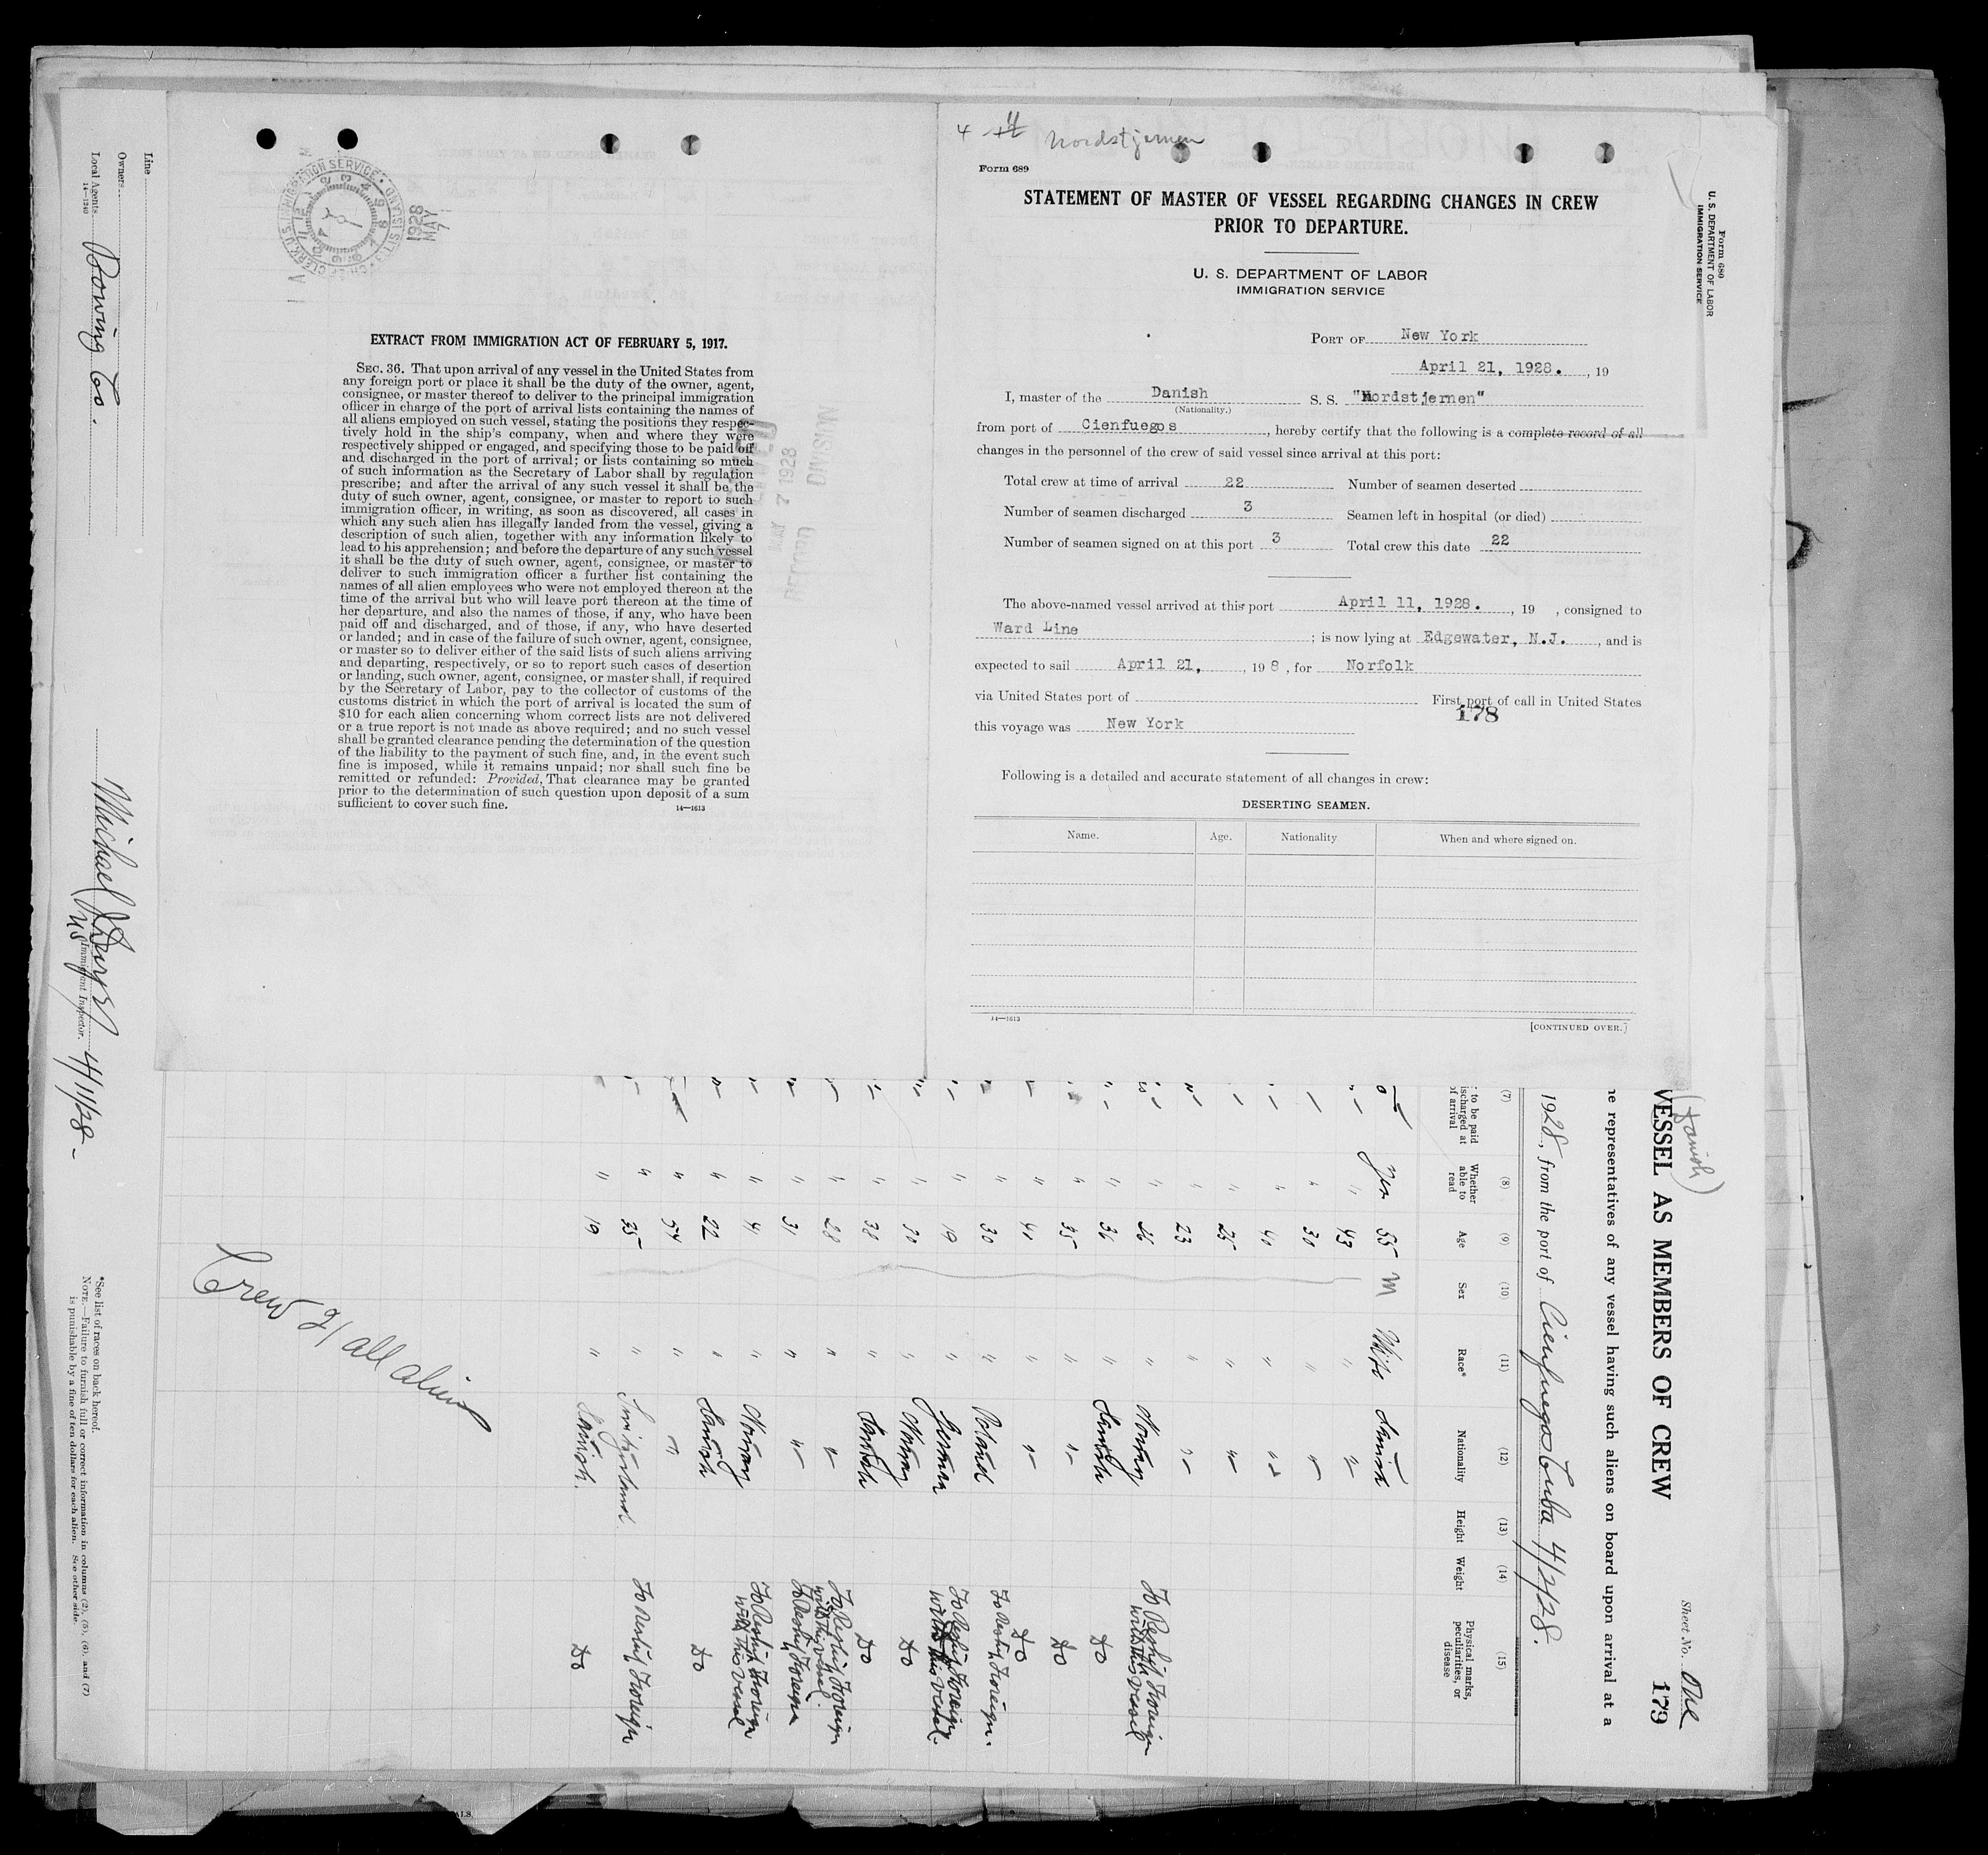 4 Nordstjernen
Form 689
STATEMENT OF MASTER OF VESSEL REGARDING CHANGES IN CREW
PRIOR TO DEPARTURE.
U. S. DEPARTMENT OF LABOR
IMMIGRATION SERVICE
PORT OF New York
April 21, 1928. , 19
I, master of the Danish S. S. "Nordstjernen"
(Nationality.)
from port of Cienfuegos, hereby certify that the following is a complete record of all
changes in the personnel of the crew of said vessel since arrival at this port:
Total crew at time of arrival 22 Number of seamen deserted
Number of seamen discharged 3 Seamen left in hospital (or died)
Number of seamen signed on at this port 3 Total crew this date 22
The above-named vessel arrived at this port April 11, 1928. , 19 , consigned to
Ward Line ; is now lying at Edgewater, N.J. , and is
expected to sail April 21, , 198 , for Norfolk
via United States port of First port of call in United States
178
this voyage was New York
Following is a detailed and accurate statement of all changes in crew:
DESERTING SEAMEN.
Name. Age. Nationality When and where signed on.
14—1613
[CONTINUED OVER.]
U.S. IMMIGRATION SERVICE
1928
MAY
7
EXTRACT FROM IMMIGRATION ACT OF FEBRUARY 5, 1917.
SEC. 36. That upon arrival of any vessel in the United States from
any foreign port or place it shall be the duty of the owner, agent,
consignee, or master thereof to deliver to the principal immigration
officer in charge of the port of arrival lists containing the names of
all aliens employed on such vessel, stating the positions they respec-
tively hold in the ship's company, when and where they were
respectively shipped or engaged, and specifying those to be paid off
and discharged in the port of arrival; or lists containing so much
of such information as the Secretary of Labor shall by regulation
prescribe; and after the arrival of any such vessel it shall be the
duty of such owner, agent, consignee, or master to report to such
immigration officer, in writing, as soon as discovered, all cases in
which any such alien has illegally landed from the vessel, giving a
description of such alien, together with any information likely to
lead to his apprehension; and before the departure of any such vessel
it shall be the duty of such owner, agent, consignee, or master to
deliver to such immigration officer a further list containing the
names of all alien employees who were not employed thereon at the
time of the arrival but who will leave port thereon at the time of
her departure, and also the names of those, if any, who have been
paid off and discharged, and of those, if any, who have deserted
or landed; and in case of the failure of such owner, agent, consignee,
or master so to deliver either of the said lists of such aliens arriving
and departing, respectively, or so to report such cases of desertion
or landing, such owner, agent, consignee, or master shall, if required
by the Secretary of Labor, pay to the collector of customs of the
customs district in which the port of arrival is located the sum of
$10 for each alien concerning whom correct lists are not delivered
or a true report is not made as above required; and no such vessel
shall be granted clearance pending the determination of the question
of the liability to the payment of such fine, and, in the event such
fine is imposed, while it remains unpaid; nor shall such fine be
remitted or refunded: Provided, That clearance may be granted
prior to the determination of such question upon deposit of a sum
sufficient to cover such fine.
14—1613
MAY 7 1928
RECORD DIVISION
Form 680
U. S. DEPARTMENT OF LABOR
IMMIGRATION SERVICE
(Danish)
Sheet No. One
VESSEL AS MEMBERS OF CREW 179
representatives of any vessel having such aliens on board upon arrival at a
1928, from the port of Cienfuegos Cuba 4/2/28.
(7) (8) (9) (10) (11) (12) (13) (14) (15)
to be paid
discharged at
of arrival
Whether
able to
read
Age
Sex
Race*
Nationality
Height
Weight
Physical marks,
peculiarities, or
disease
yes 55 M White Danish
" 43 " "
" 30 " "
" 40 " "
" 25 " "
" 23 " "
" 26 " Norway To Reship Foreign
with this vessel
" 36 " Danish Do
" 35 " " Do
" 41 " " Do
" 30 " Poland To Reship Foreign.
" 19 " German To Reship Foreign
with this vessel.
" 30 " Norway Do
" 38 " Danish Do
" 28 " " To Reship Foreign
with this vessel.
" 31 " " To Reship Foreign
" 41 " Norway To Reship Foreign
with this vessel
" 22 " Danish Do
" 54 " "
" 35 " Switzerland To Reship Foreign
" 19 " Danish. Do
Crew 21 all aliens
Line
Owners
Local Agents Bowring Co.
14—1240
Michael
U S Immigrant Inspector.
4/11/28
*See list of races on back hereof.
NOTE.—Failure to furnish full or correct information in columns (2), (5), (6), and (7)
is punishable by a fine of ten dollars for each alien. See other side.